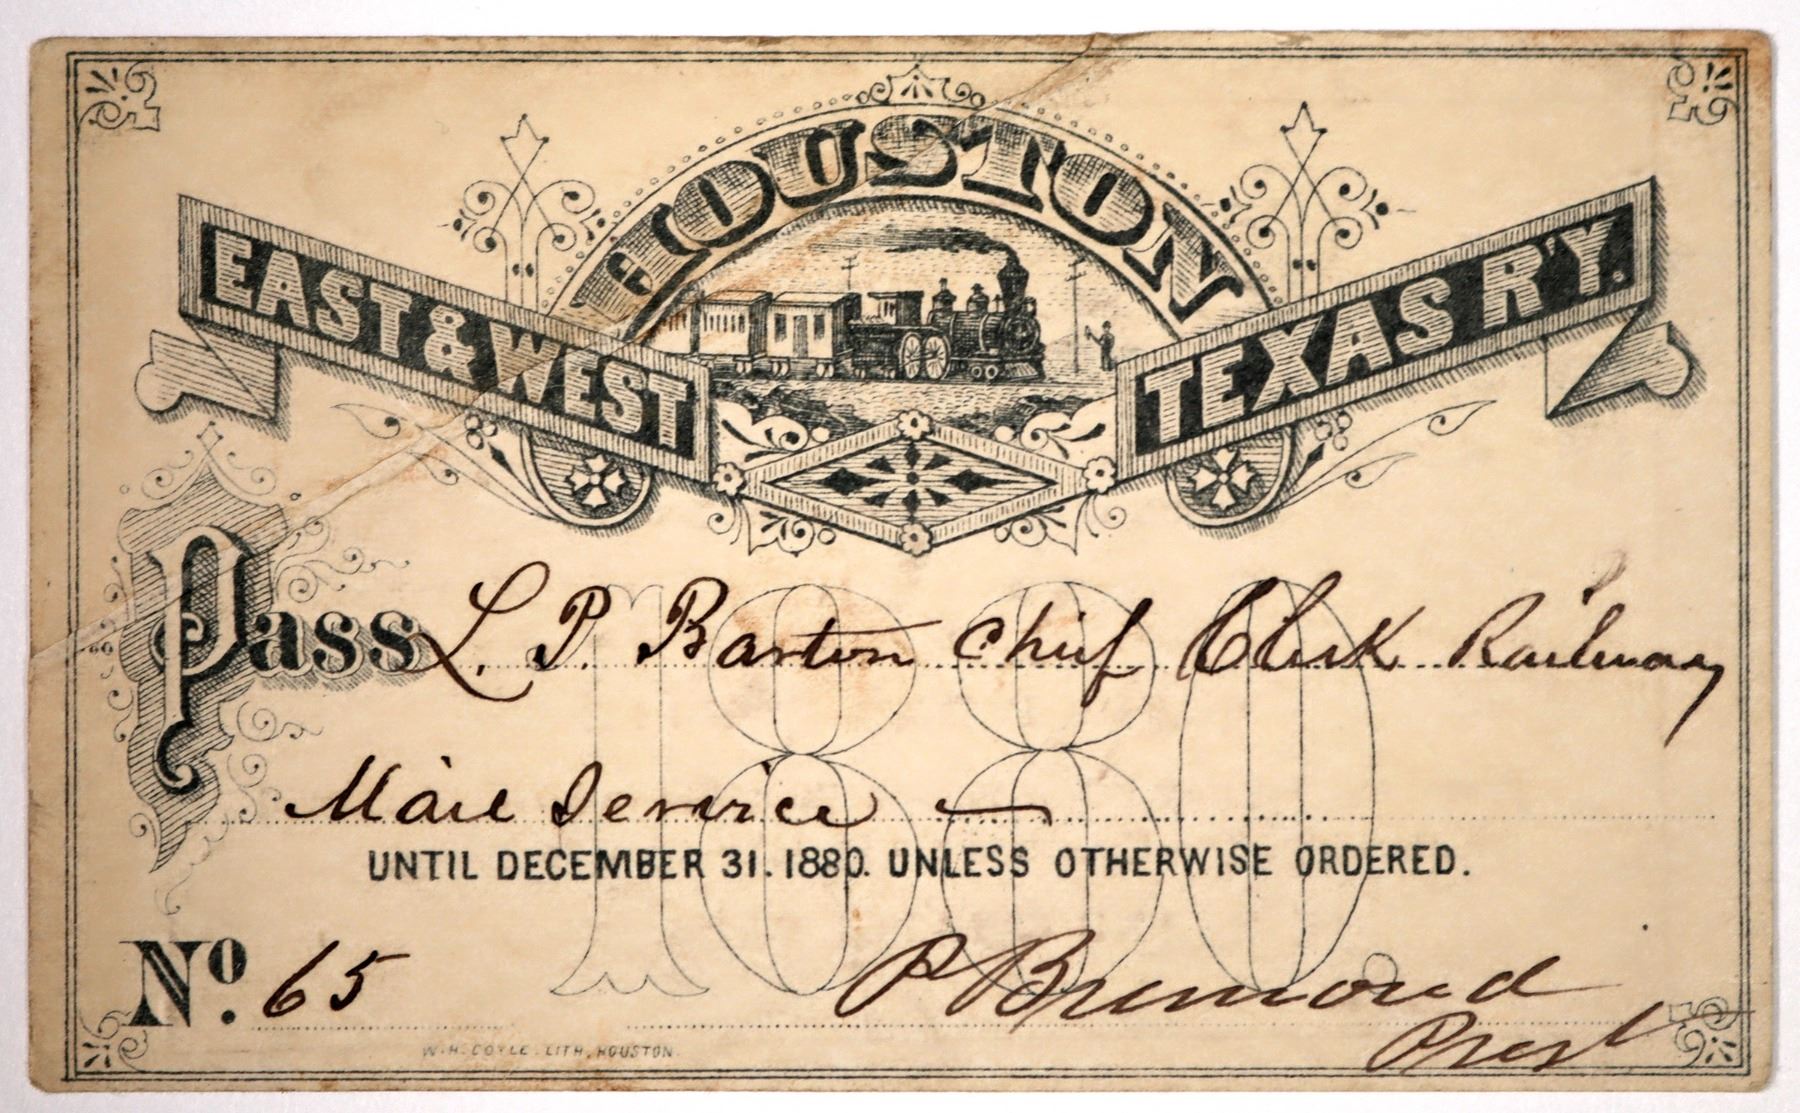 HOUSTON
EAST & WEST TEXAS R'Y.
Pass L. P. Barton Chief Clerk Railway
Mail Service —
UNTIL DECEMBER 31. 1880. UNLESS OTHERWISE ORDERED.
1880
No. 65 P Bremond
Prest
W.H. COYLE. LITH, HOUSTON.